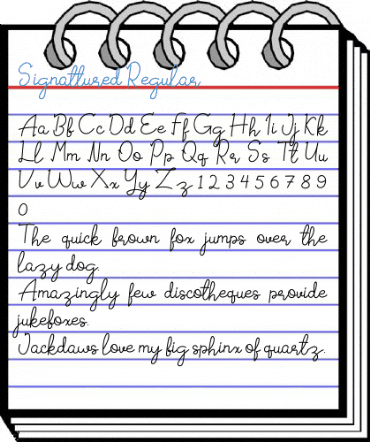 Signattured Regular
Aa Bb Cc Dd Ee Ff Gg Hh Ii Jj Kk
Ll Mm Nn Oo Pp Qq Rr Ss Tt Uu
Vv Ww Xx Yy Zz 1 2 3 4 5 6 7 8 9
0
The quick brown fox jumps over the
lazy dog.
Amazingly few discotheques provide
jukeboxes.
Jackdaws love my big sphinx of quartz.